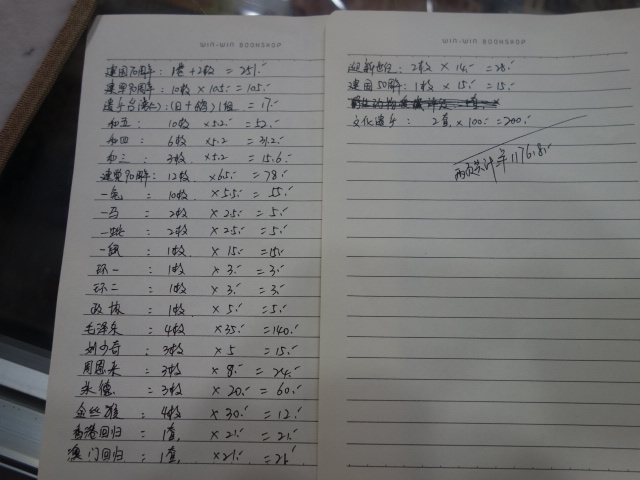 WIN-WIN BOOKSHOP
建国70周年: 1卷+2枚 = 251.
建军90周年: 10枚 × 10.5 = 105.
: (日+ ) 1组 = 17.
和五: 10枚 ×5.2 = 52.
和四: 6枚 ×5.2 = 31.2.
和三: 3枚 ×5.2 = 15.6.
建党90周年: 12枚 ×6.5 = 78.
一龟: 10枚 ×5.5 = 55.
一马: 2枚 ×2.5 = 5.
一跳: 2枚 ×2.5 = 5.
一: 1枚 ×15. =15.
环一: 1枚 ×3. =3.
环二: 1枚 ×3. =3.
政协: 1枚 ×5. =5.
毛泽东: 4枚 ×35. =140.
刘少奇: 3枚 ×5 =15.
周恩来: 3枚 ×8. =24.
朱德: 3枚 ×20. =60.
金丝猴: 4枚 ×30. =12.
香港回归: 1套 ×21. =21.
澳门回归: 1套 ×21. =21.
WIN-WIN BOOKSHOP
迎新世纪: 2枚 ×14. =28.
建国50周年: 1枚 ×15. =15.
文化遗产: 2套 ×100. =200.
两页共计 1176.8.